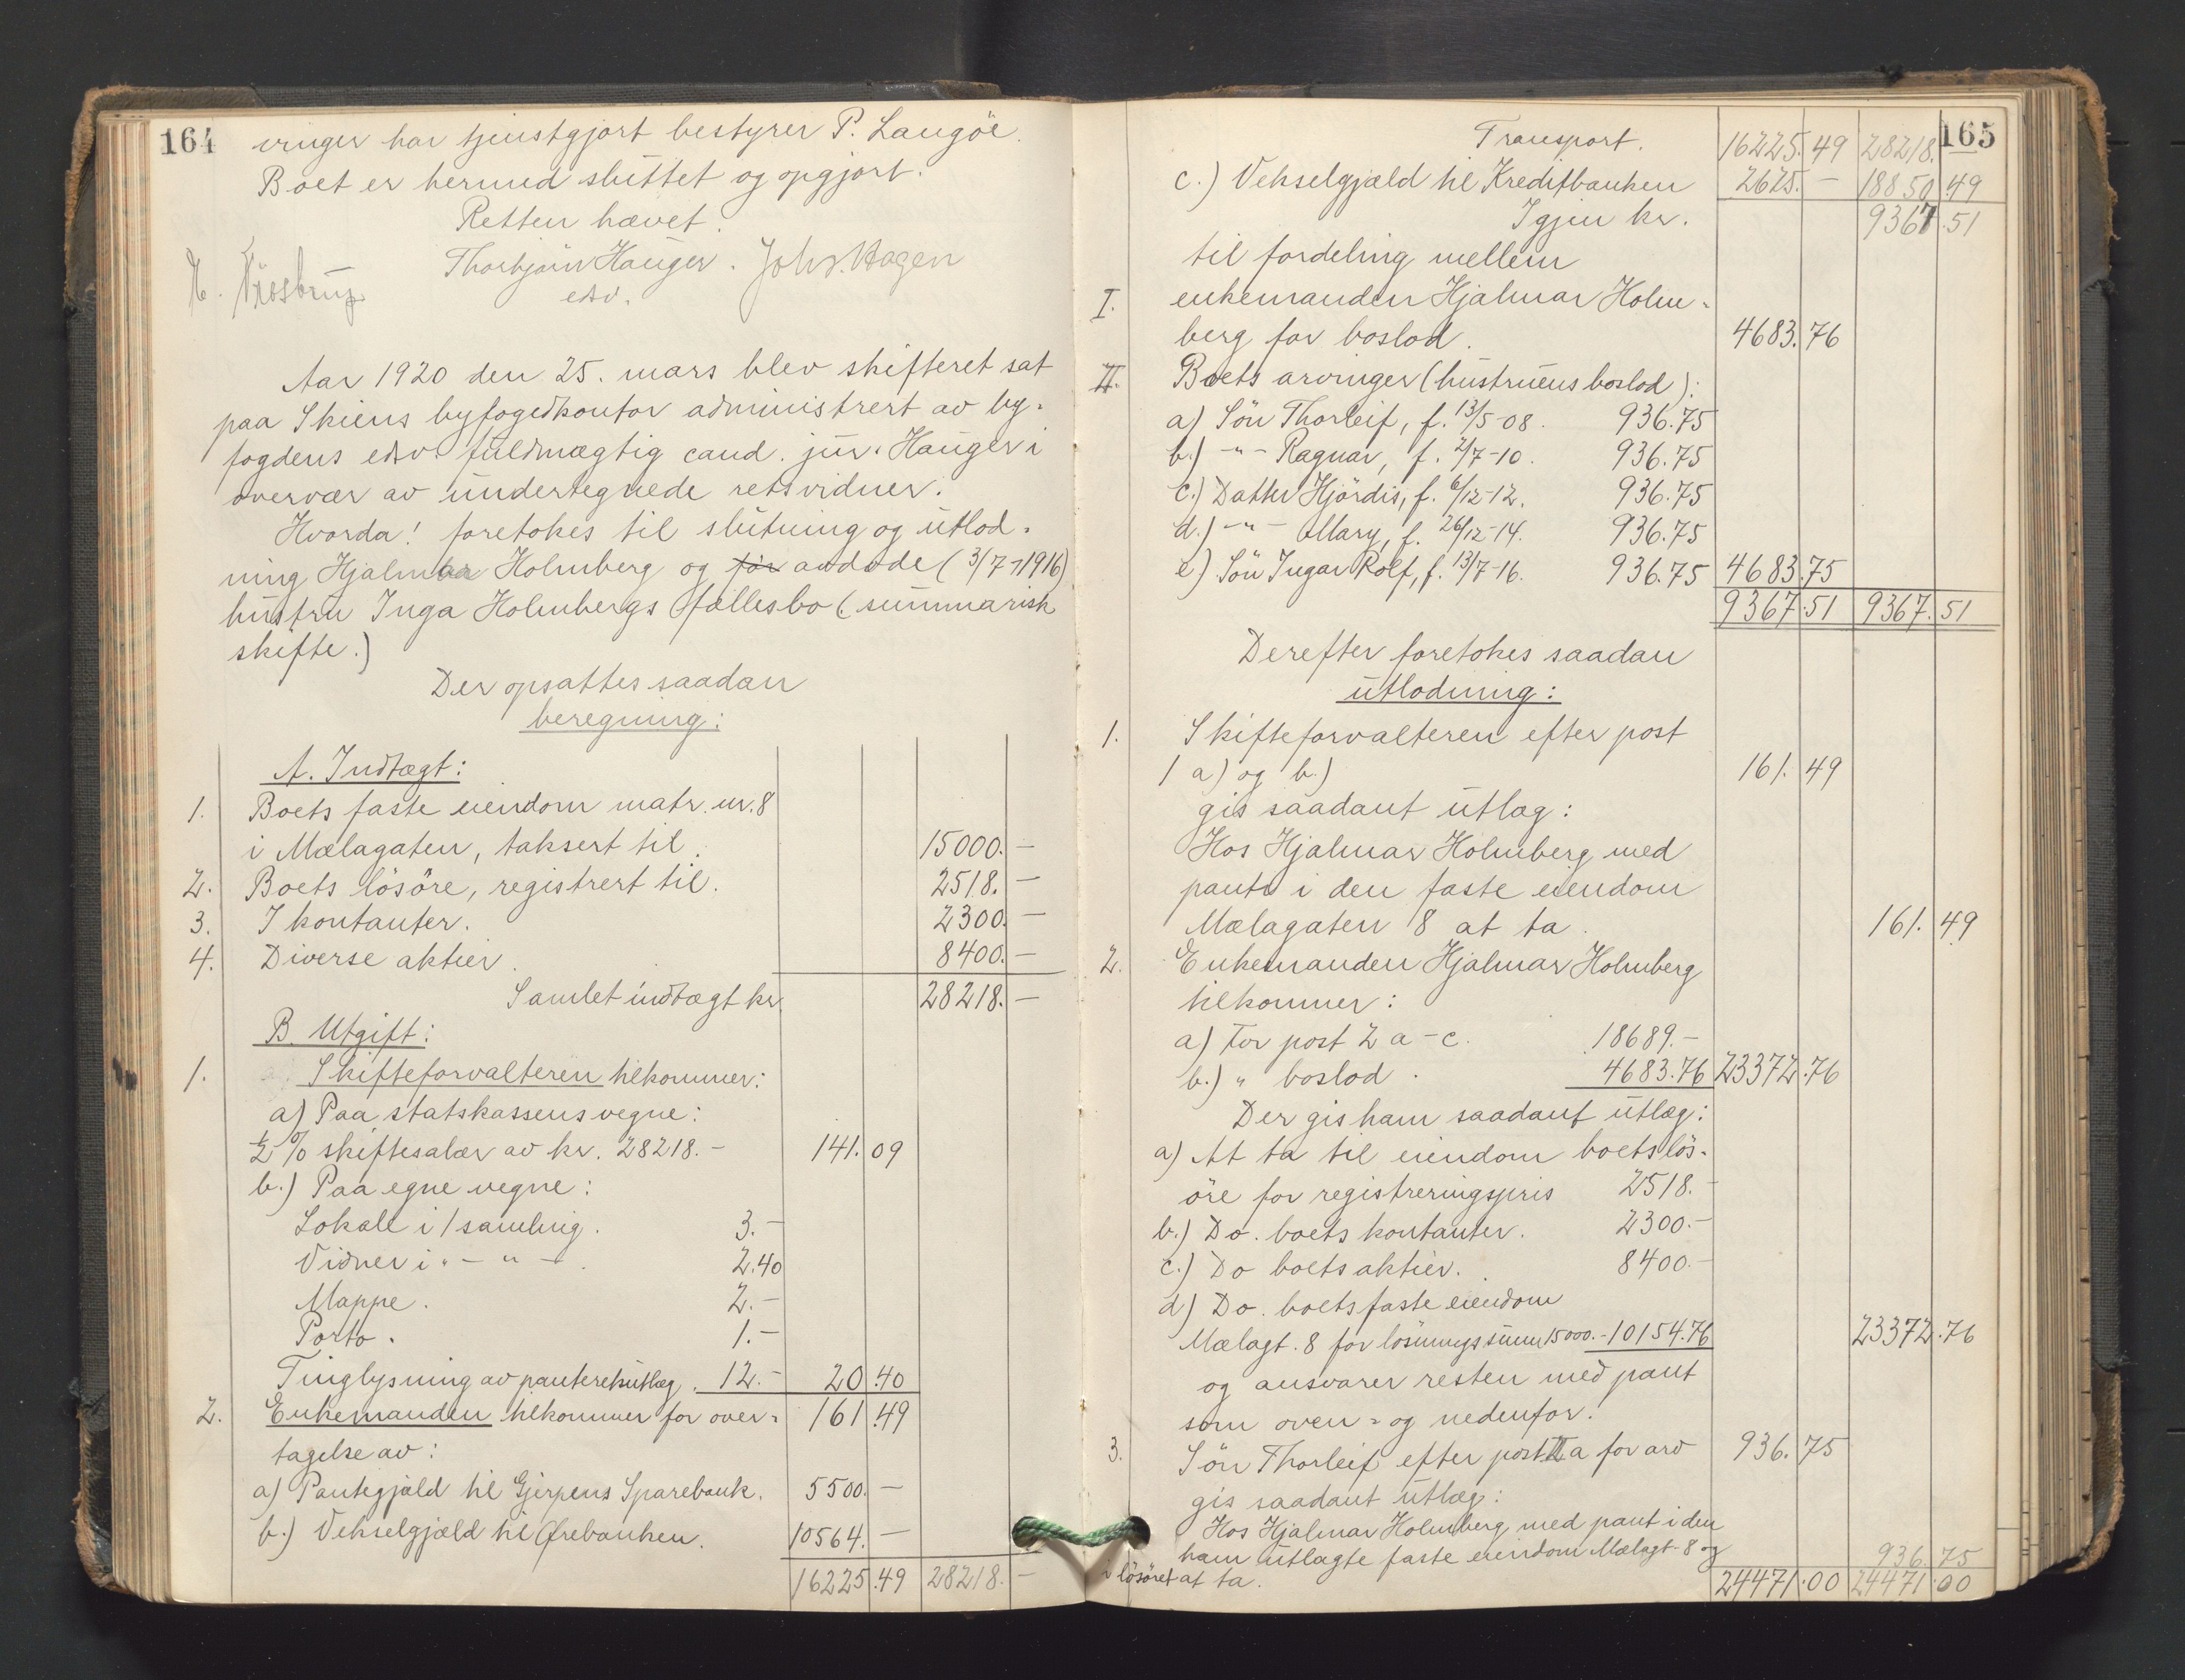 164
vinger har tjenstgjort bestyrer P. Langöe.
Boet er hermed sluttet og opgjort.
Retten hævet.
Thorbjörn Hauger. Joh. Hagen
edsv.
Aar 1920 den 25. mars blev skifteret sat
paa Skiens byfogedkontor administrert av by-
fogdens edsv. fuldmægtig cand. jur. Hauger i
overvær av undertegnede retsvidner.
Hvorda! foretokes til slutning og utlod-
ning Hjalmar Holmberg og før avdøde (3/7-1916)
hustru Inga Holmbergs fællesbo (summarisk
skifte.)
Der opsattes saadan
beregning:
A. Indtægt:
1. Boets faste eiendom matr. nr. 8
i Mælagaten, taksert til 15000. –
2. Boets lösöre, registrert til. 2518. –
3. I kontanter. 2300. –
4. Diverse aktier. 8400. –
Samlet indtægt kr. 28218. –
B. Utgift:
1. Skifteforvalteren tilkommer:
a) Paa statskassens vegne:
½ % skiftesalær av kr. 28218. – 141.09
b.) Paa egne vegne:
Lokale i 1 samling. 3. –
Vidner i " – " – . 2.40
Mappe. 2. –
Porto. 1. –
Tinglysning av panteretsutlæg. 12. – 20.40
2. Enkemanden tilkommer for over- 161.49
tagelse av:
a) Pantegjæld til Gjerpens Sparebank. 5500. –
b.) Vekselgjæld til Örebanken. 10564. –
16225.49 28218. –
165
Transport. 16225.49 28218. –
c.) Vekselgjæld til Kreditbanken 2625. – 18850.49
Igjen kr. 9367.51
til fordeling mellem
I. enkemanden Hjalmar Holm-
berg for boslod. 4683.76
II. Boets arvinger (hustruens boslod):
a) Sön Thorleif, f. 13/5-08. 936.75
b.) – " – Ragnar, f. 2/7-10. 936.75
c.) Datter Hjördis, f. 6/12-12. 936.75
d.) – " – Mary, f. 26/12-14. 936.75
e) Sön Ingar Rolf, f. 13/7-16. 936.75 4683.75
9367.51 9367.51
Derefter foretokes saadan
utlodning:
1. Skifteforvalteren efter post
1 a) og b.) 161.49
gis saadant utlæg:
Hos Hjalmar Holmberg med
pant i den faste eiendom
Mælagaten 8 at ta. 161.49
2. Enkemanden Hjalmar Holmberg
tilkommer:
a) For post 2 a – c. 18689. –
b.) " boslod. 4683.76 23372.76
Der gis ham saadant utlæg:
a) At ta til eiendom boets lös-
öre for registreringspris 2518. –
b.) Do. boets kontanter. 2300. –
c.) Do boets aktier. 8400. –
d) Do. boets faste eiendom
Mælagt. 8 for lösningssum 15000. – 10154.76 23372.76
og ansvarer resten med pant
som oven- og nedenfor.
3. Sön Thorleif efter post II a for arv 936.75
gis saadant utlæg:
Hos Hjalmar Holmberg med pant i den
ham utlagte faste eiendom Mælagt. 8 og 936.75
i lösöret at ta. 24471.00 24471.00